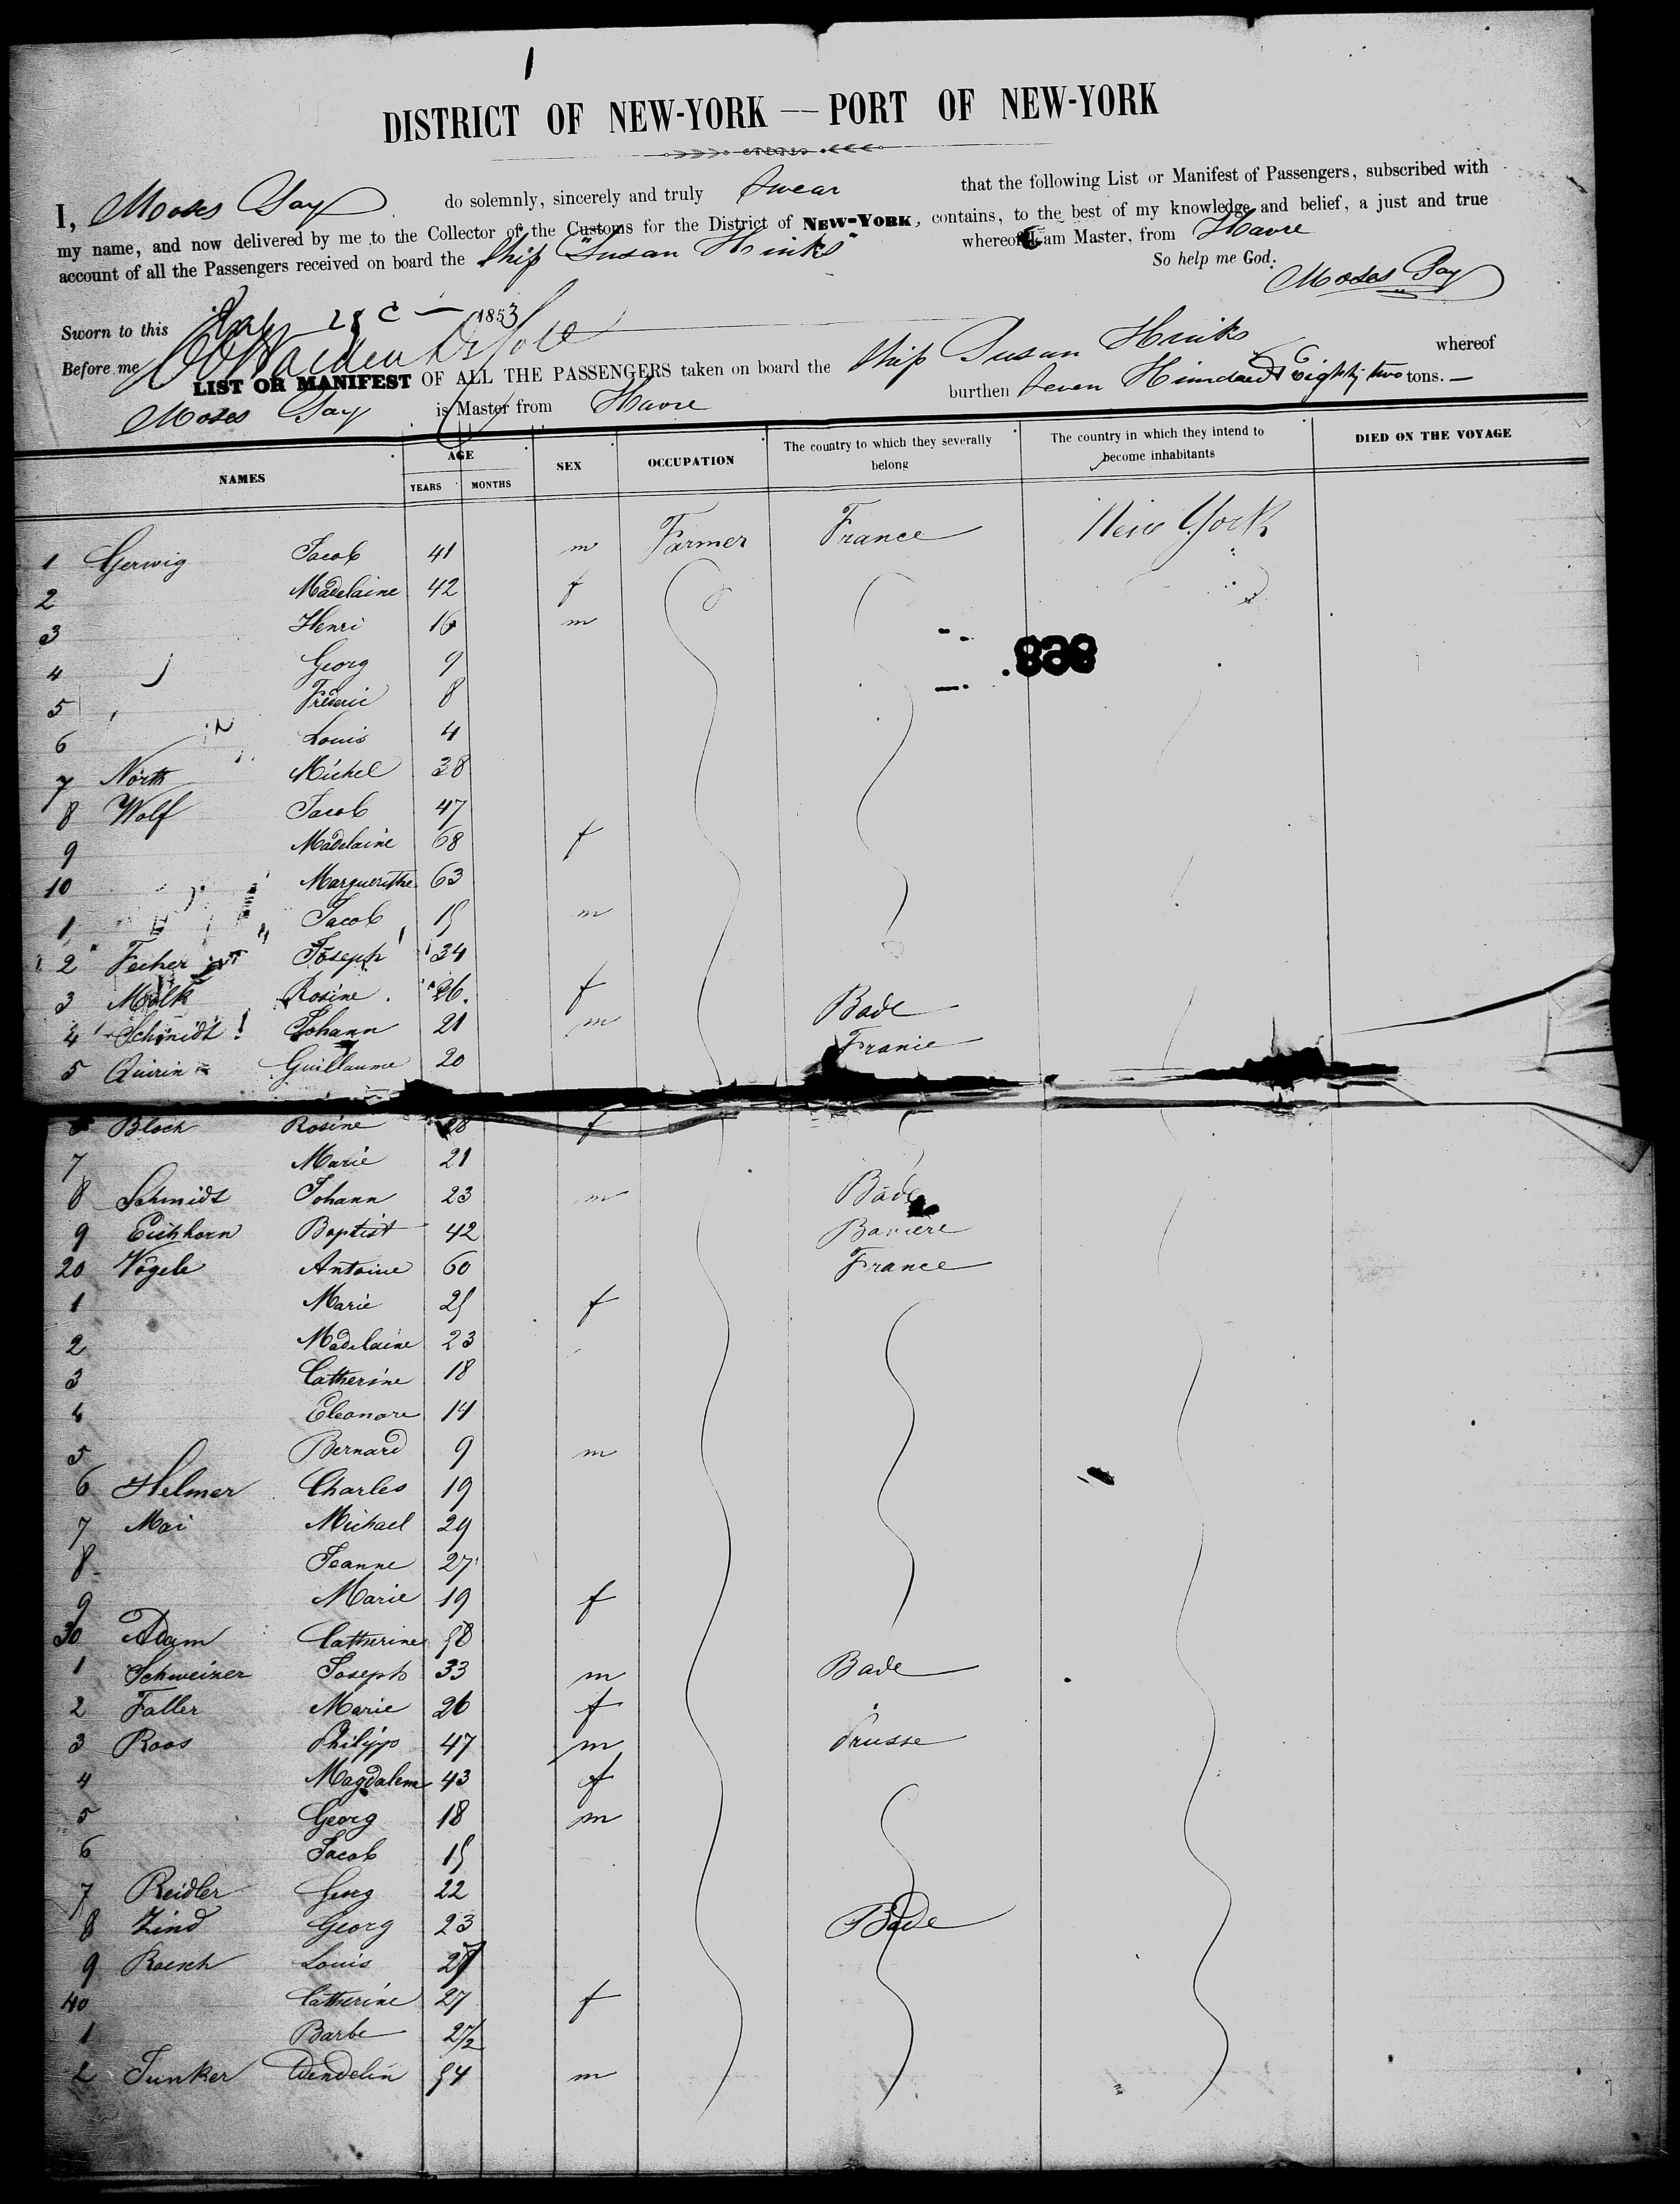 1
DISTRICT OF NEW-YORK — PORT OF NEW-YORK
I, Moses Gay do solemnly, sincerely and truly swear that the following List or Manifest of Passengers, subscribed with
my name, and now delivered by me to the Collector of the Customs for the District of NEW-YORK, contains, to the best of my knowledge and belief, a just and true
account of all the Passengers received on board the Ship "Susan Hinks" whereof I am Master, from Havre
So help me God.
Moses Gay
Sworn to this 28 1853
Before me
LIST OR MANIFEST OF ALL THE PASSENGERS taken on board the Ship Susan Hinks whereof
Moses Gay is Master from Havre burthen Seven Hundred & Eighty two tons.—
NAMES AGE YEARS MONTHS SEX OCCUPATION The country to which they severally belong The country in which they intend to become inhabitants DIED ON THE VOYAGE
1 Gerwig Jacob 41 m Farmer France New York
2 Madelaine 42 f
3 Henri 16 m
4 Georg 9
898
5 Fréderic 8
6 Louis 4
7 North Michel 38
8 Wolf Jacob 47
9 Madelaine 68 f
10 Marguerithe 63
1 Jacob 15 m
2 Fecher Joseph 34
3 Rosine 26 f Bade
4 Schmidt Johann 21 m France
5 Quirin Guillaume 20
6 Bloch Rosine f
7 Marie 21
8 Schmidt Johann 23 m Bade
9 Eichhorn Baptist 42 Baviere
20 Vögele Antoine 60 France
1 Marie 25 f
2 Madelaine 23
3 Catherine 18
4 Eleonore 14
5 Bernard 9 m
6 Helmer Charles 19
7 Mai Michael 29
8 Jeanne 27
9 Marie 19 f
30 Adam Catherine 58
1 Schweizer Joseph 33 m Bade
2 Faller Marie 26 f
3 Roos Philipp 47 m Prusse
4 Magdalena 43 f
5 Georg 18 m
6 Jacob 15
7 Reidler Georg 22
8 Zind Georg 23 Bade
9 Roesch Louis
40 Catherine 27 f
1 Barbe 2 1/2
2 Junker Wendelin 54 m